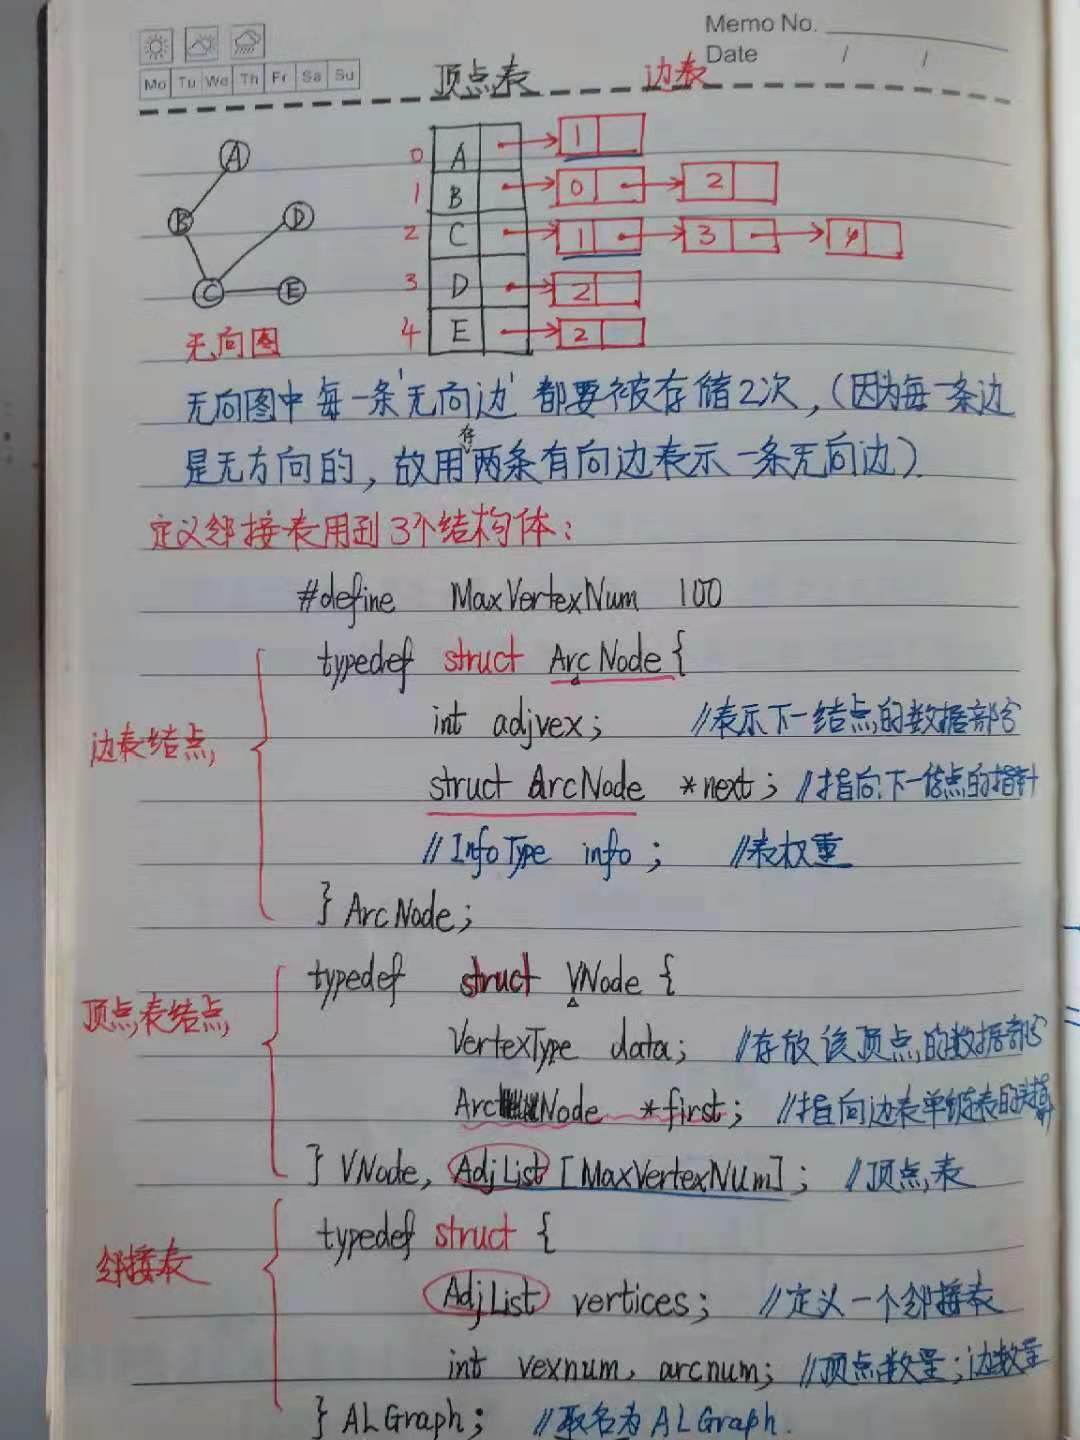 Memo No.
Date / /
Mo Tu We Th Fr Sa Su
顶点表 边表
A
B
D
C E
无向图
0 A 1
1 B 0 2
2 C 1 3 4
3 D 2
4 E 2
无向图中每一条'无向边'都要被存储2次,(因为每一条边
是无方向的,故用存两条有向边表示一条无向边)
定义邻接表用到3个结构体:
#define MaxVertexNum 100
typedef struct ArcNode {
int adjvex; //表示下一结点的数据部分
边表结点
struct ArcNode *next; //指向下一结点的指针
//InfoType info; //表权重
} ArcNode;
typedef struct VNode {
顶点表结点
VertexType data; //存放该顶点的数据部分
ArcNode *first; //指向边表单链表的
} VNode, AdjList [MaxVertexNUm]; //顶点表
typedef struct {
邻接表
AdjList vertices; //定义一个邻接表
int vexnum, arcnum; //顶点数量;边数量
} ALGraph; //取名为ALGraph.